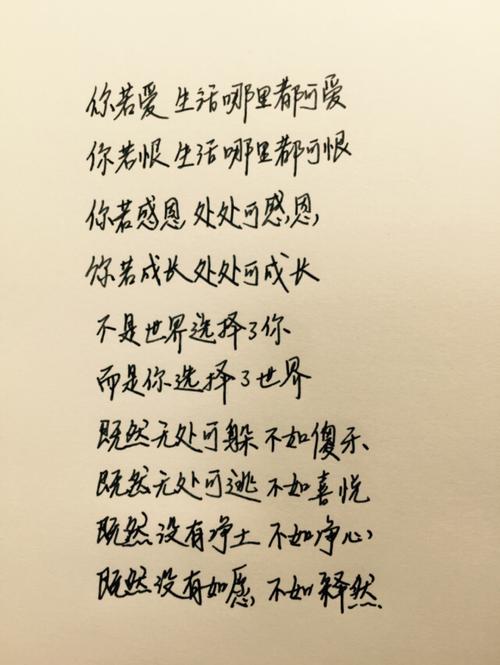 你若爱 生活哪里都可爱
你若恨 生活哪里都可恨
你若感恩 处处可感恩
你若成长 处处可成长
不是世界选择了你
而是你选择了世界
既然无处可躲 不如傻乐
既然无处可逃 不如喜悦
既然没有净土 不如净心
既然没有如愿 不如释然